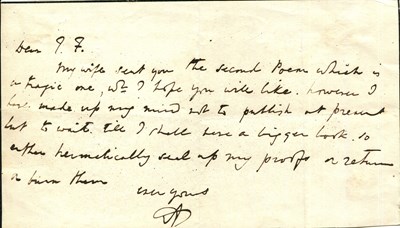 Dear J. F.
My wife sent you the second Poem which is
a tragic one, wh. I hope you will like. however I
have made up my mind not to publish at present
but to wait till I shall have a bigger book. so
either hermetically seal up my proofs or return
or burn them
ever yours
AT